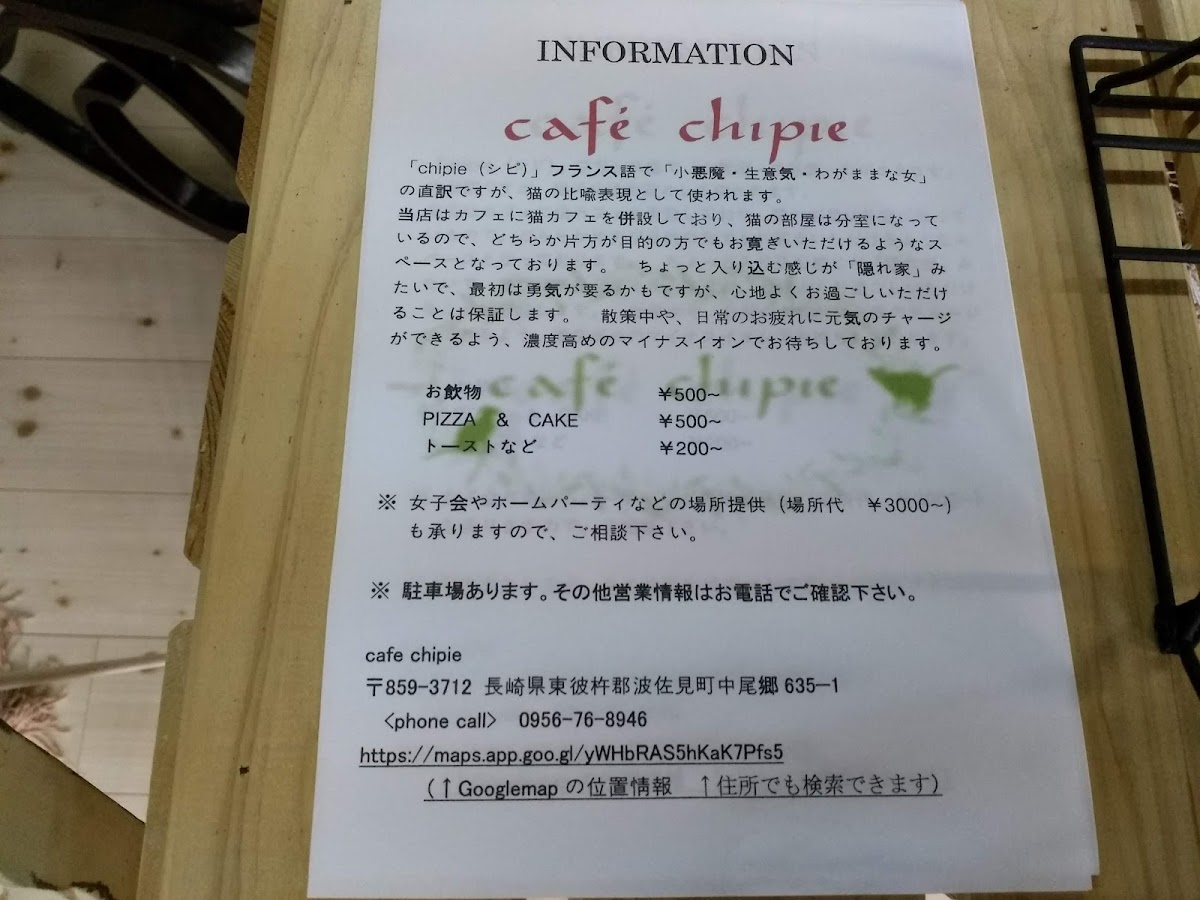 INFORMATION
café chipie
「chipie（シピ）」フランス語で「小悪魔・生意気・わがままな女」
の直訳ですが、猫の比喩表現として使われます。
当店はカフェに猫カフェを併設しており、猫の部屋は分室になって
いるので、どちらか片方が目的の方でもお寛ぎいただけるようなス
ペースとなっております。　ちょっと入り込む感じが「隠れ家」み
たいで、最初は勇気が要るかもですが、心地よくお過ごしいただけ
ることは保証します。　散策中や、日常のお疲れに元気のチャージ
ができるよう、濃度高めのマイナスイオンでお待ちしております。
café chipie
お飲物　¥500~
PIZZA & CAKE　¥500~
トーストなど　¥200~
※ 女子会やホームパーティなどの場所提供（場所代　¥3000~）
も承りますので、ご相談下さい。
※ 駐車場あります。その他営業情報はお電話でご確認下さい。
cafe chipie
〒859-3712 長崎県東彼杵郡波佐見町中尾郷 635－1
<phone call>　0956-76-8946
https://maps.app.goo.gl/yWHbRAS5hKaK7Pfs5
（↑Googlemap の位置情報　↑住所でも検索できます）